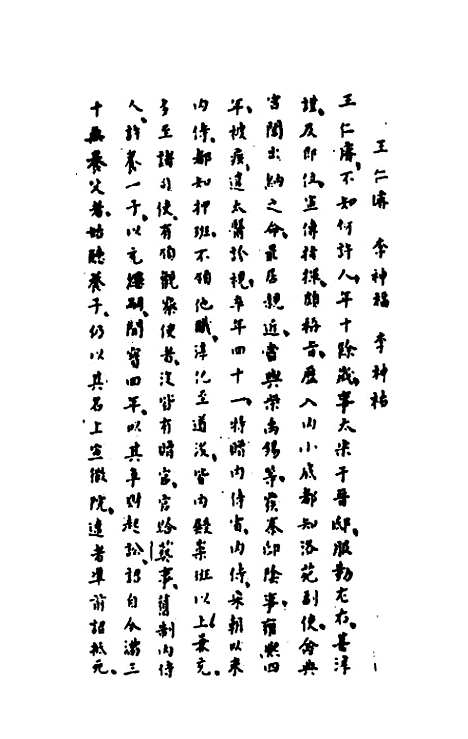 王仁睿 李神福 李神祐
王仁睿、不知何許人、年十餘歲、事太宗于晉邸、服勤左右、甚淳
謹、及即位、宣傳指揮、頗稱旨、歷入內小底都知、洛苑副使、會典
宮閣出納之命、最居親近、嘗與柴禹錫等、發秦邸陰事、雍熙四
年、被疾、遣太醫診視、卒年四十一、特贈內侍省、內侍、宋朝以來
內侍、都知押班、不領他職、淳化至道後、皆內殿崇班以上兼充、
多至諸司使、有領觀察使者、沒皆有贈官、官給葬事、舊制內侍
人、許養一子、以充繼嗣、開寶四年、以其爭財起訟、詔自今滿三
十無養父者、始聽養子、仍以其名上宣徽院、違者準前詔抵死、